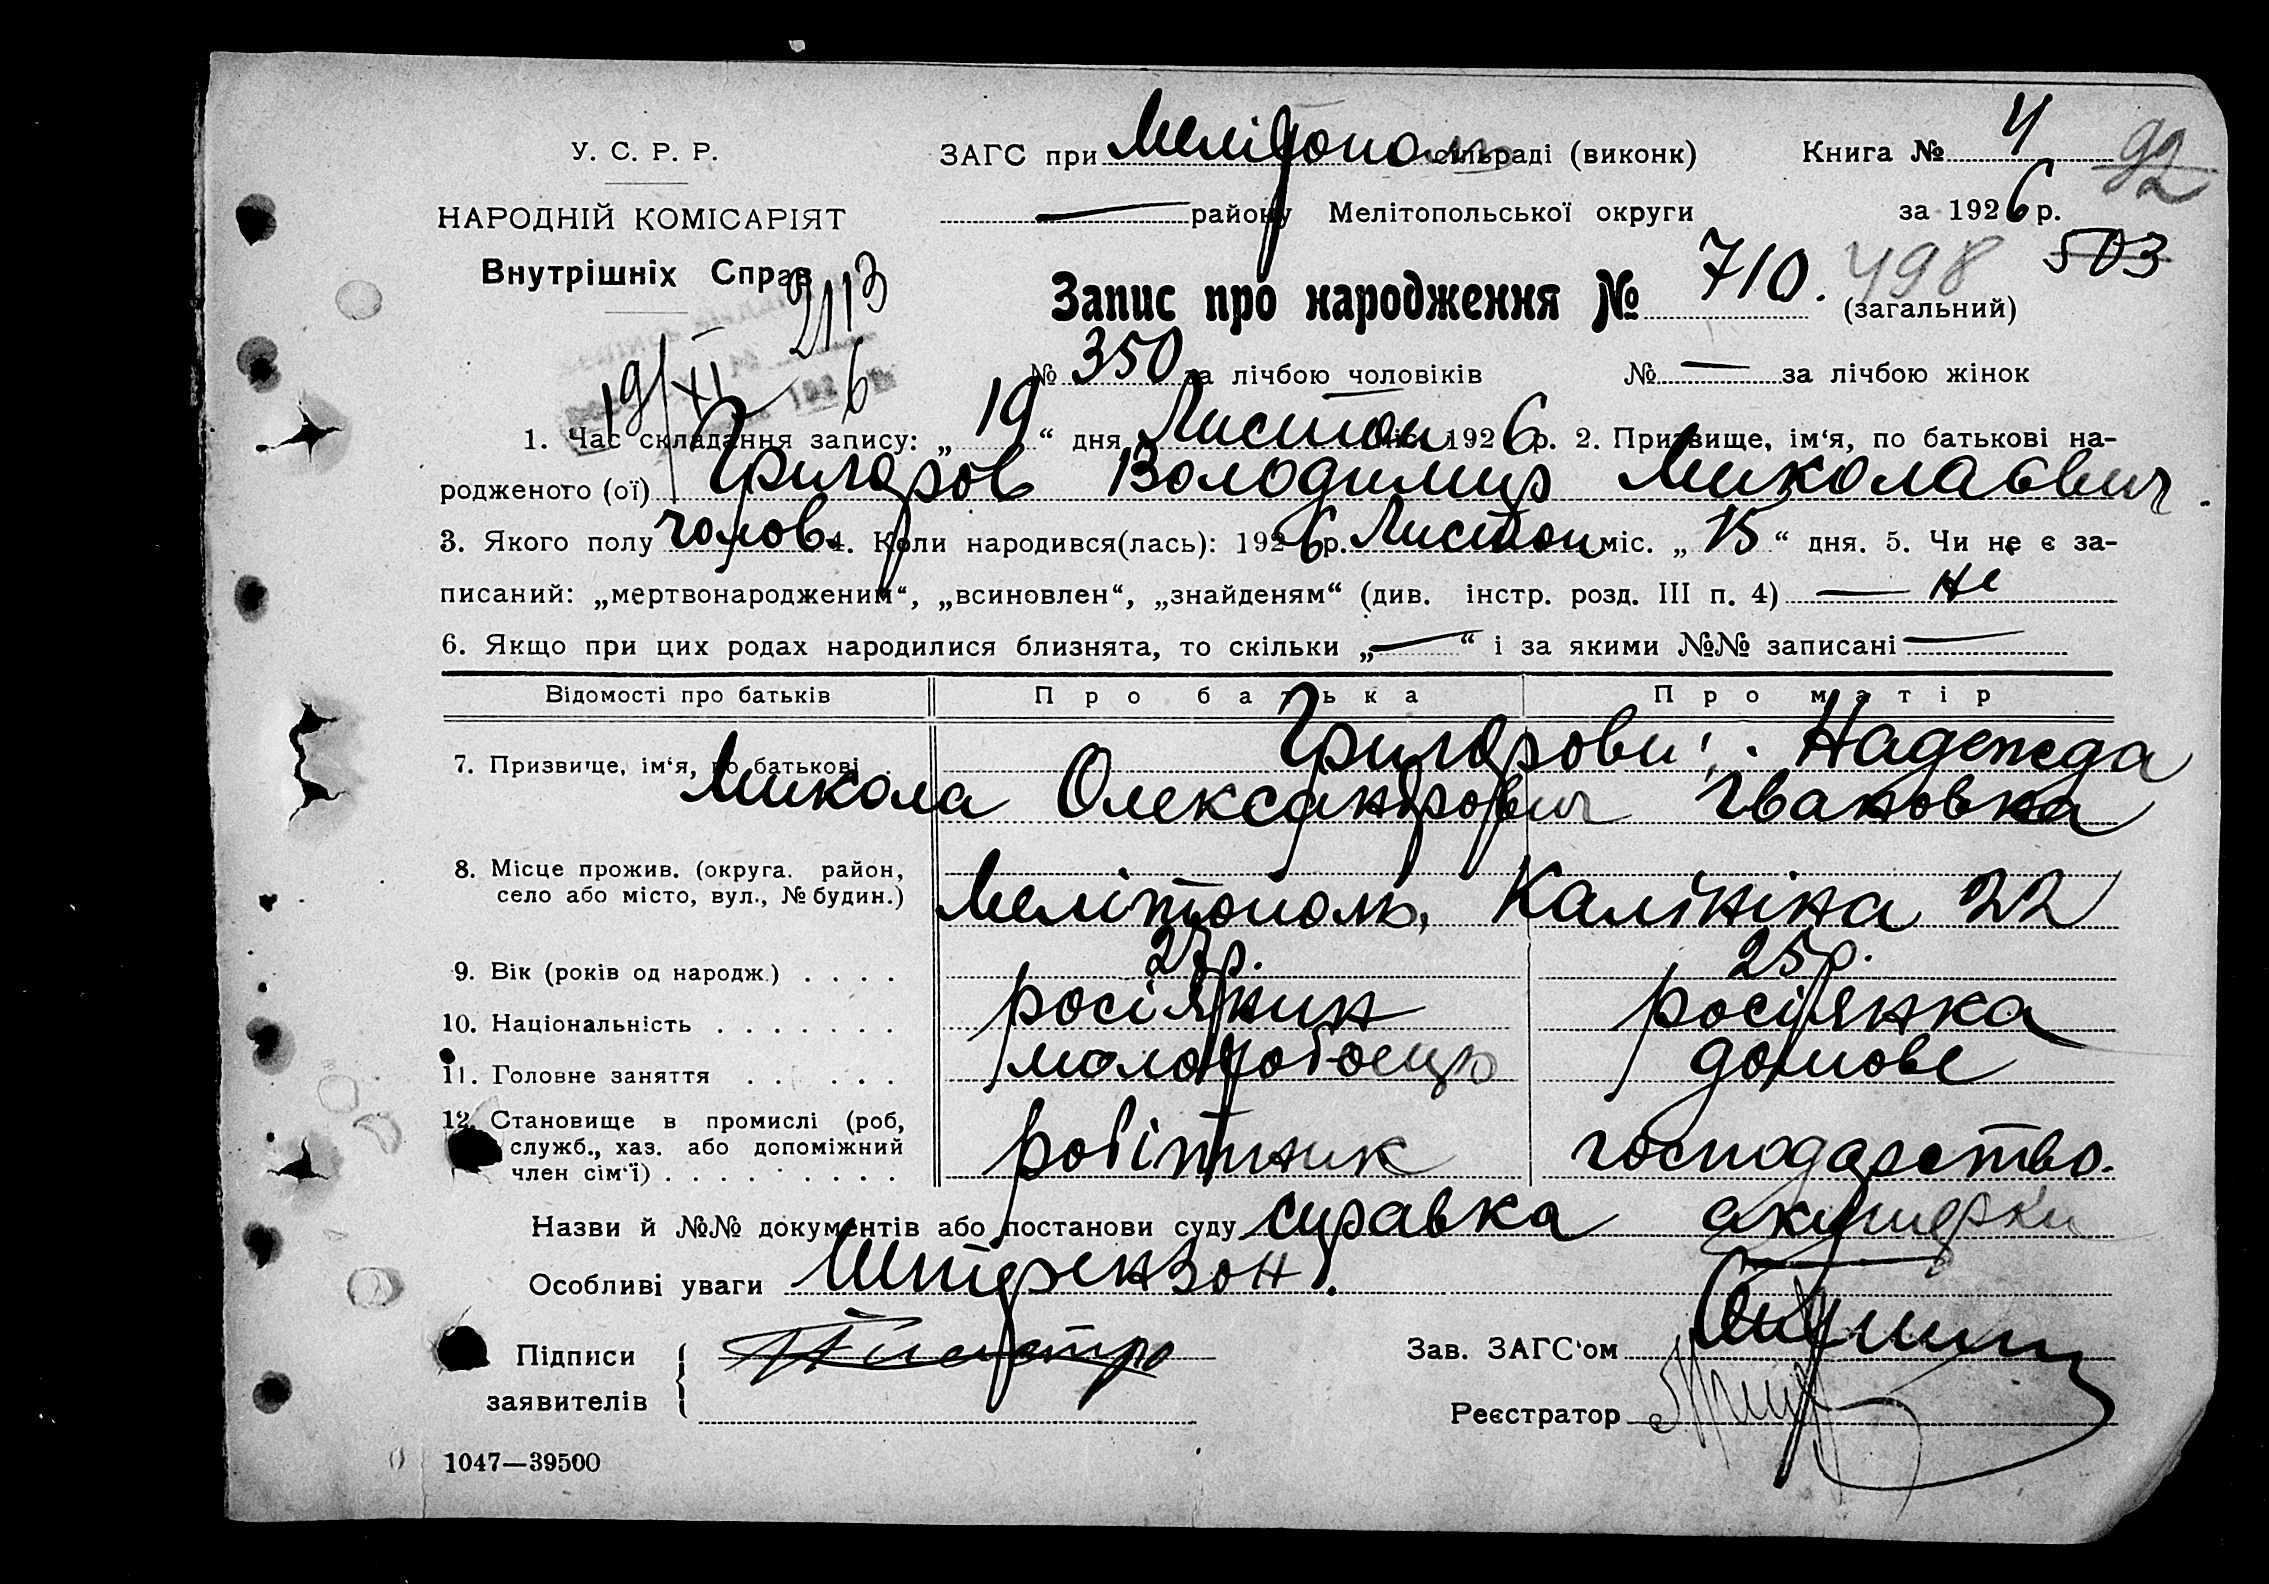 У. С. Р. Р.
НАРОДНІЙ КОМІСАРІЯТ
Внутрішніх Справ
2113
19/XI 6
ЗАГС при Мелітополь сільраді (виконк) Книга № 4 92
— району Мелітопольської округи за 1926 р.
503
Запис про народження № 710. 498 (загальний)
№ 350 за лічбою чоловіків № — за лічбою жінок
1. Час складання запису: „ 19 “ дня Листоп міс. 1926 р. 2. Призвище, ім‘я, по батькові на-
родженого (ої) Григоров Володимир Миколаевич.
3. Якого полу чолов. 4. Коли народився(лась): 1926 р. Листоп міс. „ 15 “ дня. 5. Чи не є за-
писаний: „мертвонародженим“, „всиновлен“, „знайденям“ (див. інстр. розд. III п. 4) — не
6. Якщо при цих родах народилися близнята, то скільки „ — “ і за якими №№ записані —
Відомості про батьків Про батька Про матір
7. Призвище, ім‘я, по батькові Григорови: Надежда
Микола Олександрович Івановна
8. Місце прожив. (округа. район,
село або місто, вул., № будин.) Мелітополь, Калініна 22
9. Вік (років од народж.) . . . . 27 р. 25 р.
10. Національність . . . . . . . росіянин росіянка
11. Головне заняття . . . . . . молотобоець домове
12. Становище в промислі (роб,
служб., хаз. або допоміжний
член сім‘ї) . . . . . . . . . робітник господарство.
Назви й №№ документів або постанови суду справка акушерки
Особливі уваги Штерензон.
Підписи
заявителів
Зав. ЗАГС‘ом
Реєстратор
1047—39500